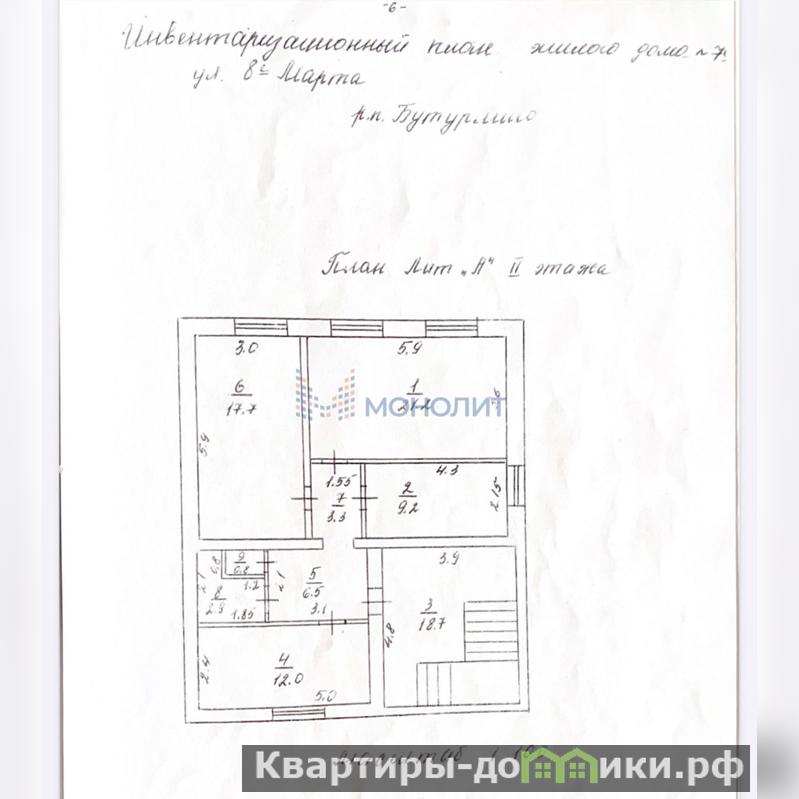 -6-
Инвентаризационный план жилого дома №7
ул. 8е Марта
р.п. Бутурлино
План Лит „А" II этажа
3.0
5.9
6
17.7
1
21.2
МОНОЛИТ
5.9
3.6
4.3
1.55
7
3.3
2
9.2
2.15
3.9
0.8
9
0.8
2.1
1.2
8
2.9
1.85
2.1
5
6.5
3.1
3
18.7
4.8
2.4
4
12.0
5.0
Квартиры-домики.рф